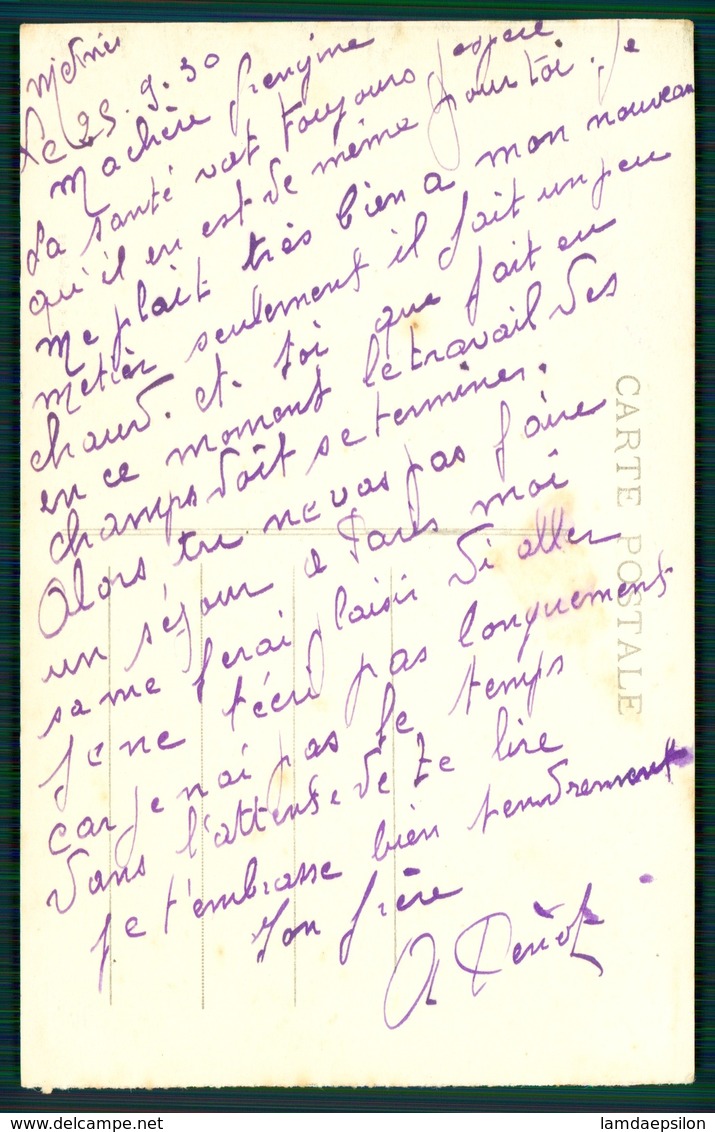 Le 25.9.30
Ma chère frengine
La santé vat toujours j'espère
qu'il en est de même pour toi. Je
me plait très bien a mon nouveau
metier seulement il fait un peu
chaud. et toi que fait on
en ce moment le travail des
champs doit se terminer.
Alors tu ne vas pas faire
un séjour a Paris moi
sa me ferai plaisir di aller
je ne técri pas longuement
car je nai pas le temps
dans l'attente de te lire
je t'embrasse bien tendrement
Ton frère
CARTE POSTALE
lamdaepsilon